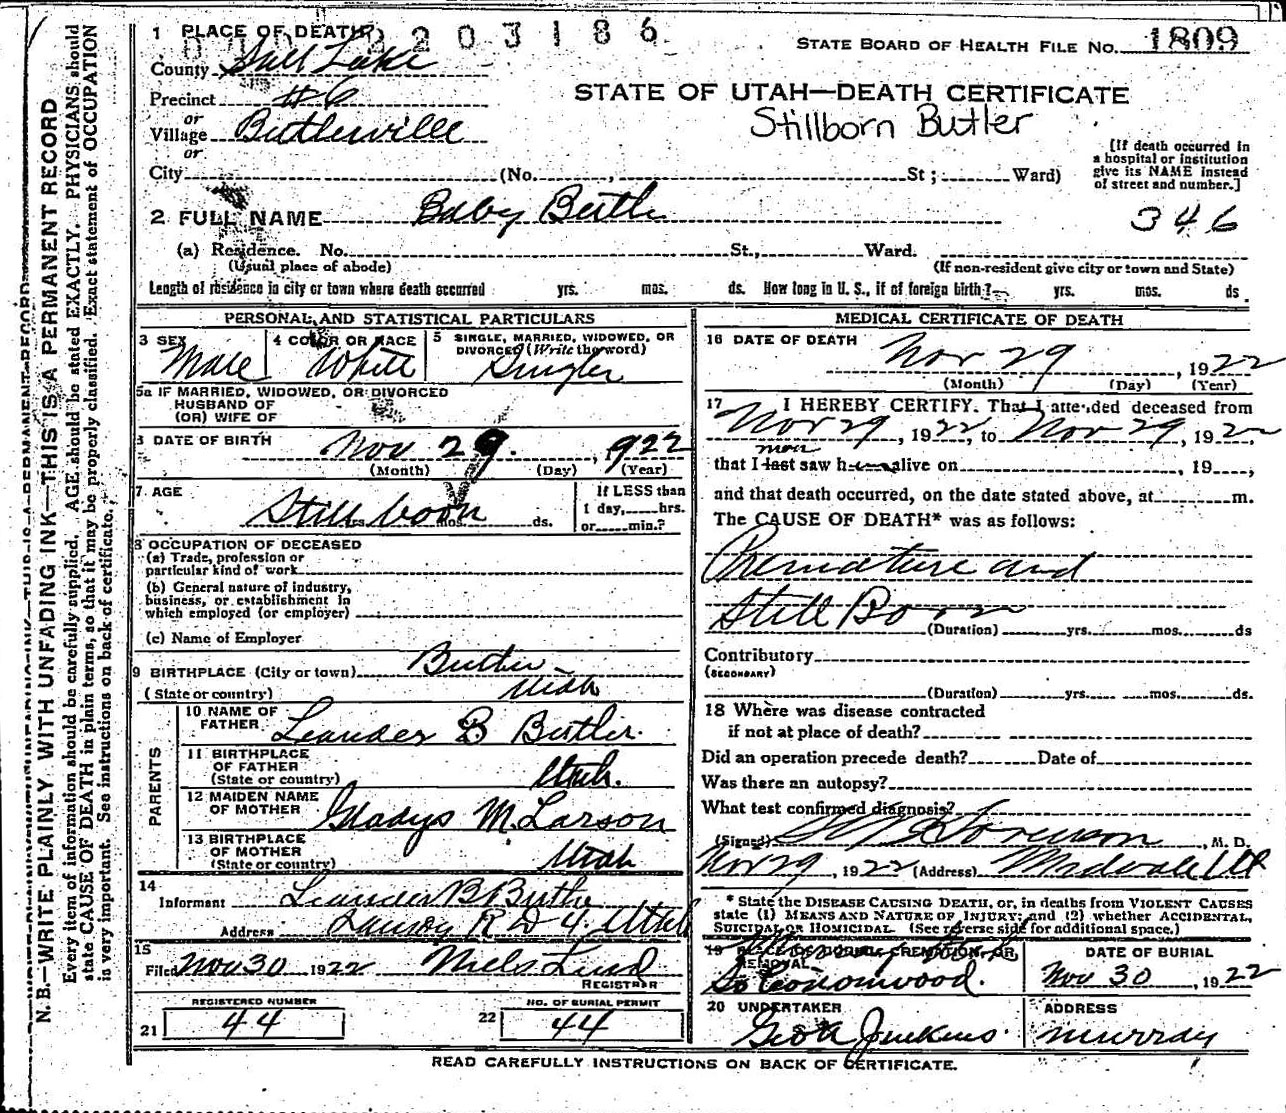 203186
1 PLACE OF DEATH
STATE BOARD OF HEALTH FILE NO. 1809
County Salt Lake
Precinct #6
STATE OF UTAH—DEATH CERTIFICATE
or
Village Butlerville
Stillborn Butler
or
City (No. , St; Ward)
[If death occurred in
a hospital or institution
give its NAME instead
of street and number.]
2 FULL NAME Baby Butler
346
(a) Residence. No. St., Ward.
(Usual place of abode) (If non-resident give city or town and State)
Length of residence in city or town where death occurred yrs. mos. ds. How long in U. S., if of foreign birth? yrs. mos. ds.
PERSONAL AND STATISTICAL PARTICULARS
3 SEX Male
4 COLOR OR RACE White
5 SINGLE, MARRIED, WIDOWED, OR
DIVORCED (Write the word)
Single
5a IF MARRIED, WIDOWED, OR DIVORCED
HUSBAND OF
(OR) WIFE OF
6 DATE OF BIRTH Nov 29. , 1922
(Month) (Day) (Year)
7. AGE Still born yrs. mos. ds.
If LESS than
1 day, hrs.
or min.?
8 OCCUPATION OF DECEASED
(a) Trade, profession or
particular kind of work
(b) General nature of industry,
business, or establishment in
which employed (or employer)
(c) Name of Employer
9 BIRTHPLACE (City or town) Butler
(State or country) Utah
PARENTS
10 NAME OF
FATHER Leander B Butler.
11 BIRTHPLACE
OF FATHER
(State or country) Utah.
12 MAIDEN NAME
OF MOTHER Gladys M. Larson
13 BIRTHPLACE
OF MOTHER
(State or country) Utah
14
Informant Leander B Butler
Address Sandy R D 4. Utah
15
Filed Nov 30 1922 Niels Lind
REGISTRAR
REGISTERED NUMBER
21 44
NO. OF BURIAL PERMIT
22 44
MEDICAL CERTIFICATE OF DEATH
16 DATE OF DEATH Nov 29 , 1922
(Month) (Day) (Year)
17 I HEREBY CERTIFY. That I attended deceased from
Nov 29 , 1922, to Nov 29 , 1922,
that I last saw h alive on , 19 ,
and that death occurred, on the date stated above, at m.
The CAUSE OF DEATH* was as follows:
Premature and
Still Born
(Duration) yrs. mos. ds
Contributory
(SECONDARY)
(Duration) yrs. mos. ds.
18 Where was disease contracted
if not at place of death?
Did an operation precede death? Date of
Was there an autopsy?
What test confirmed diagnosis?
(Signed) Sorenson , M. D.
Nov 29 , 1922 (Address) Midvale Ut
* State the DISEASE CAUSING DEATH, or, in deaths from VIOLENT CAUSES
state (1) MEANS AND NATURE OF INJURY; and (2) whether ACCIDENTAL,
SUICIDAL OR HOMICIDAL. (See reverse side for additional space.)
19 PLACE OF BURIAL, CREMATION, OR
REMOVAL
So Cottonwood.
DATE OF BURIAL
Nov 30 , 1922
20 UNDERTAKER
Geo A Jenkins.
ADDRESS
Murray
READ CAREFULLY INSTRUCTIONS ON BACK OF CERTIFICATE.
N. B.—WRITE PLAINLY WITH UNFADING INK—THIS IS A PERMANENT RECORD
Every item of information should be carefully supplied. AGE should be stated EXACTLY. PHYSICIANS should
state CAUSE OF DEATH in plain terms, so that it may be properly classified. Exact statement of OCCUPATION
is very important. See instructions on back of certificate.